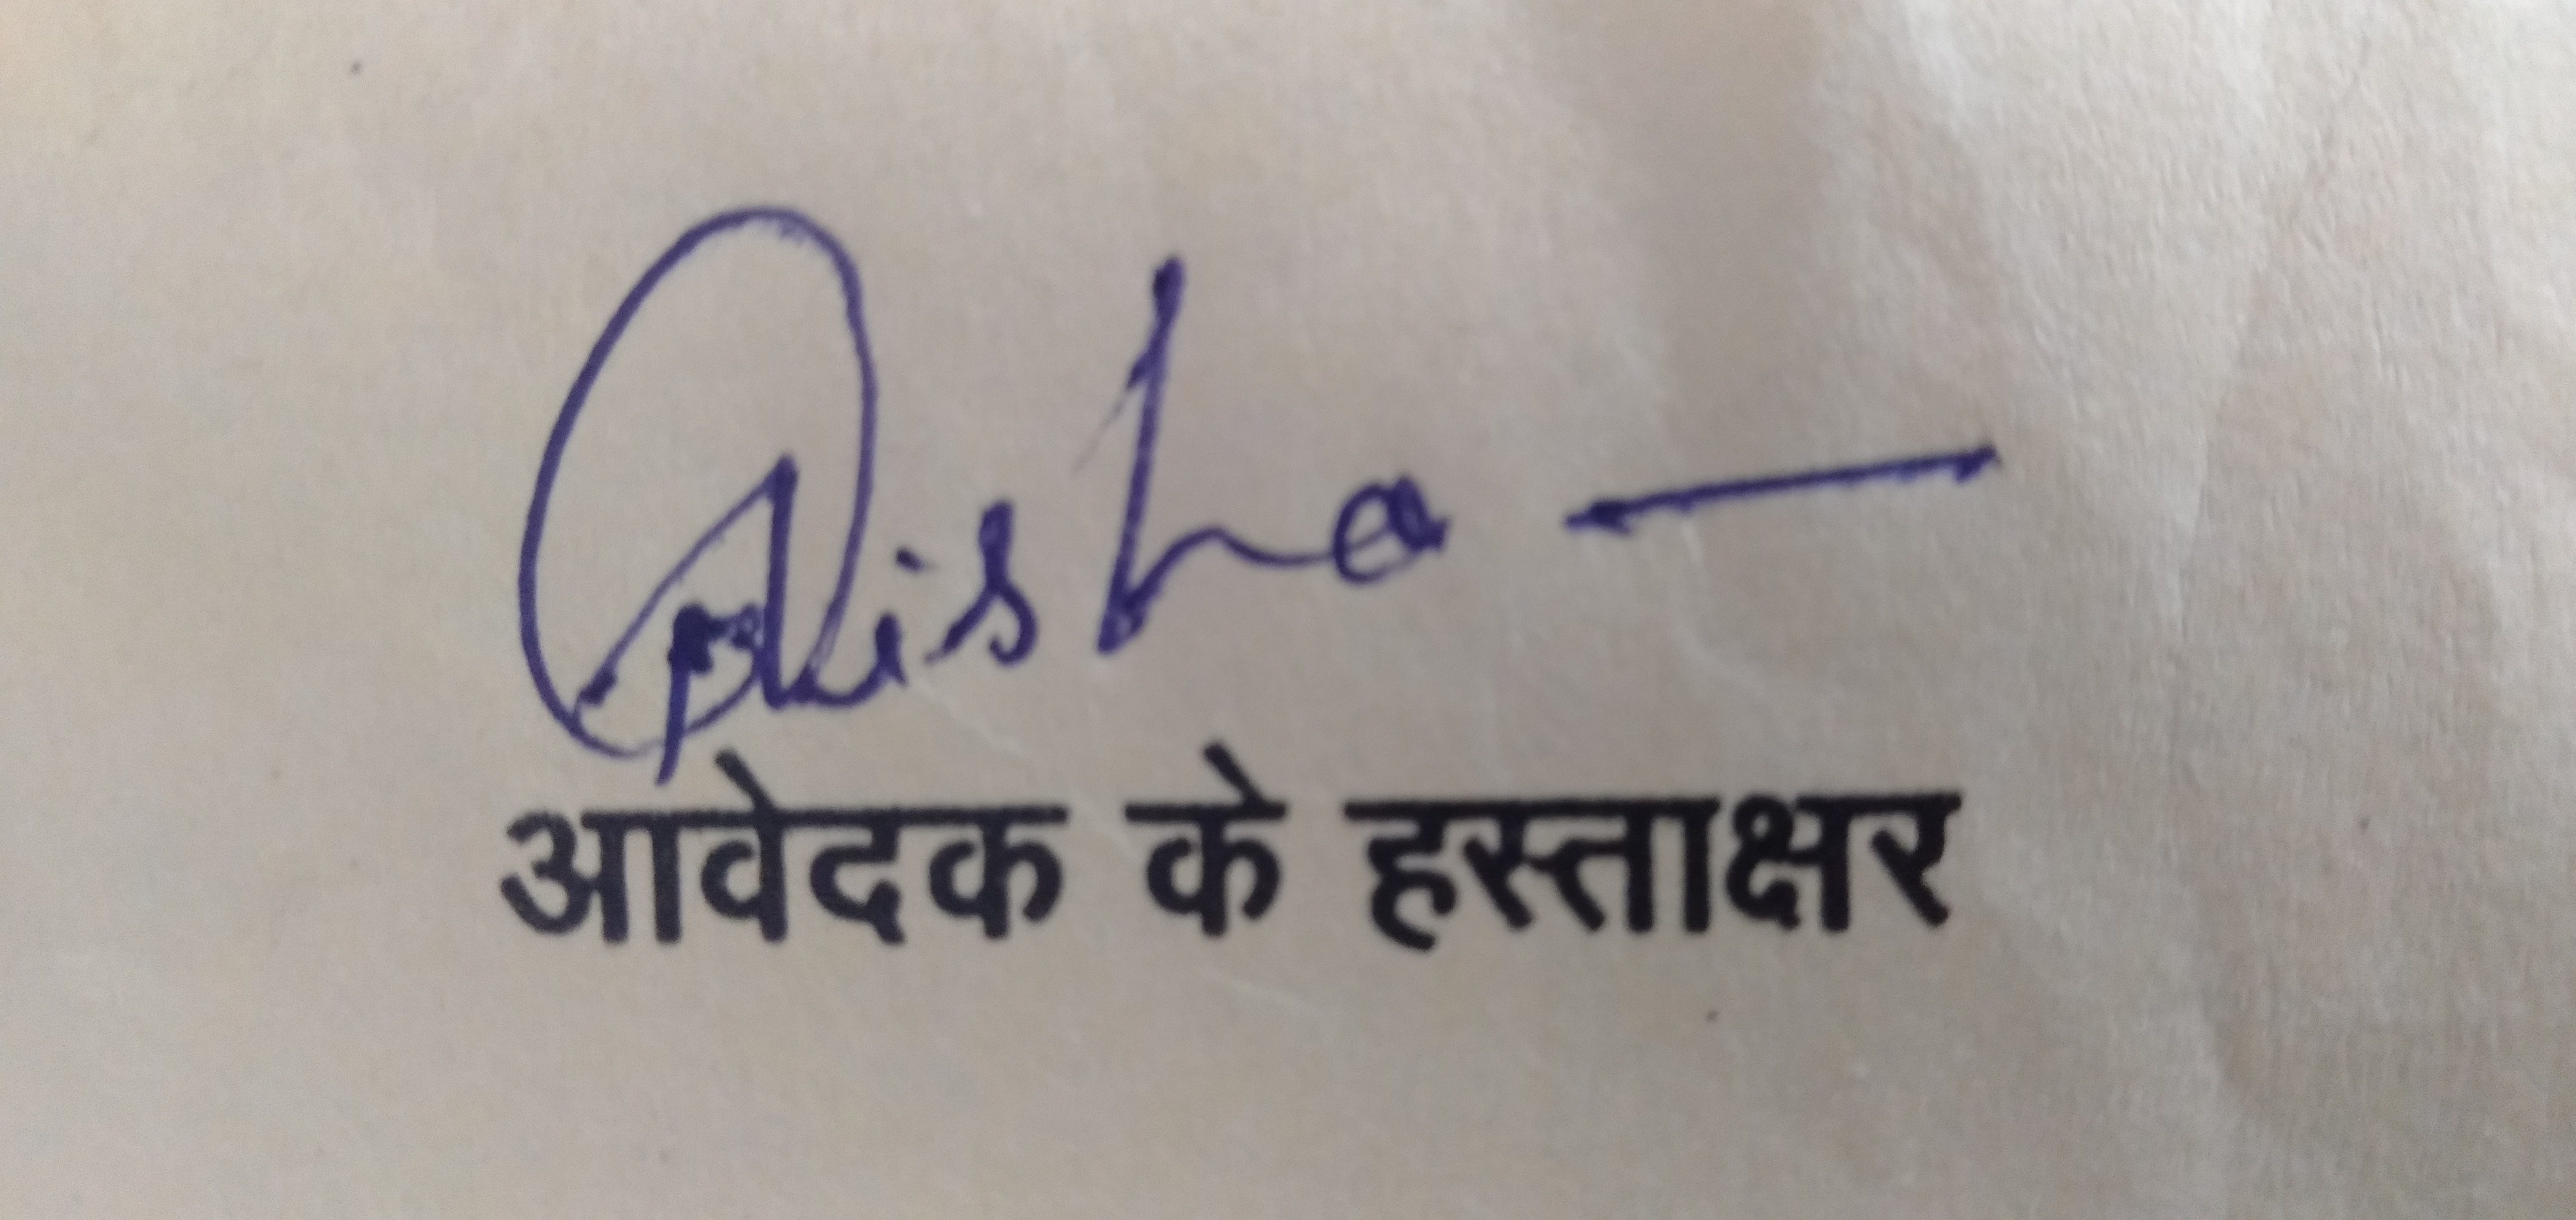 Aisha
आवेदक के हस्ताक्षर